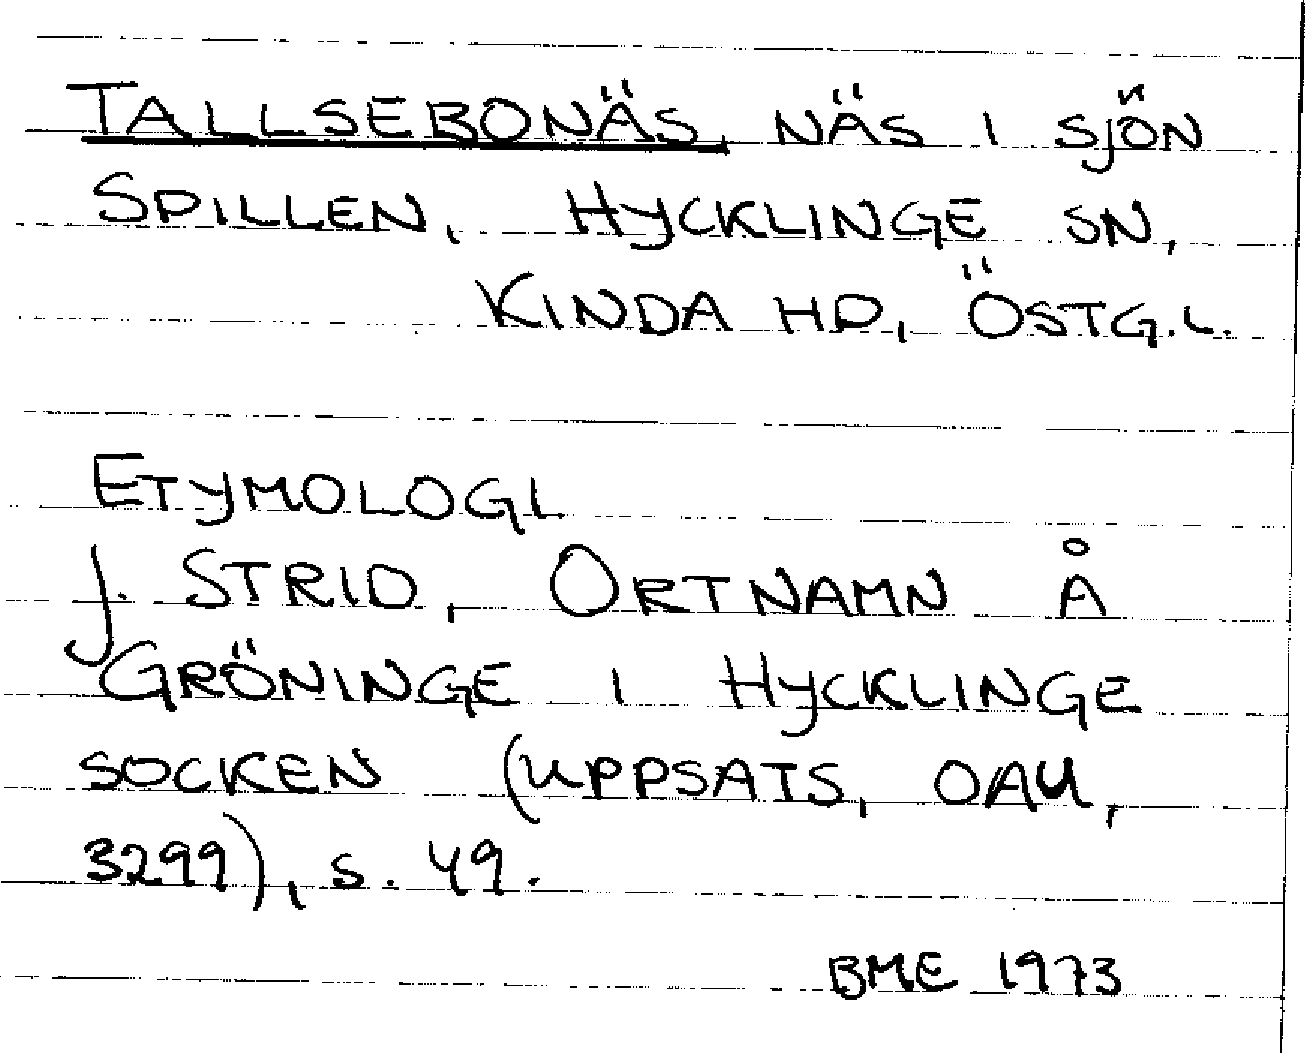 TALLSEBONÄS, NÄS I SJÖN
SPILLEN, HYCKLINGE SN,
KINDA HD, ÖSTG.L.
ETYMOLOGI.
J. STRID, ORTNAMN Å
GRÖNINGE I HYCKLINGE
SOCKEN (UPPSATS, OAU,
3299), S. 49.
BME 1973